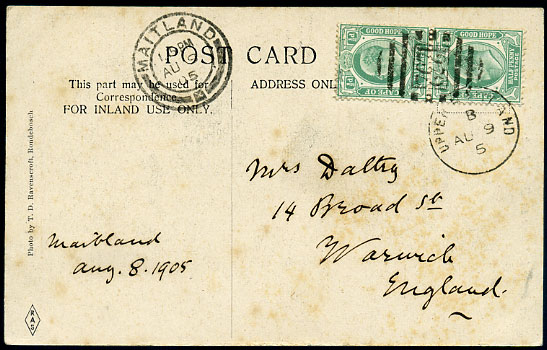 POST CARD
This part may be used for
Correspondence.
FOR INLAND USE ONLY.
ADDRESS ONL
MAITLAND
PM
AU
5
GOOD HOPE
GOOD HOPE
HALF PENNY
CAPE OF
UPPER
LAND
B
AU 9
5
Photo by T. D. Ravenscroft, Rondebosch
Mrs Daltry
14 Broad St
Warwick
England.
Maitland
Aug. 8. 1905
RAS